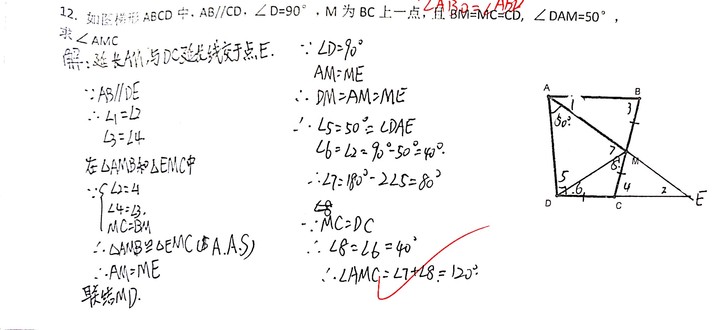 12. 如图梯形 ABCD 中，AB//CD，∠D=90°，M 为 BC 上一点，且 BM=MC=CD，∠DAM=50°，
求∠AMC
解:延长AM,与DC延长线交于点E.
∵AB//DE
∴∠1=∠2
∠3=∠4
在△AMB和△EMC中
∵∠2=4
∠4=∠3.
MC=BM
∴△AMB≌△EMC(A.A.S)
∴AM=ME
联结MD.
∵∠D=90°
AM=ME
∴DM=AM=ME
∴∠5=50°=∠DAE
∠6=∠2=90°-50°=40°.
∴∠7=180°-2∠5=80°
∵MC=DC
∴∠8=∠6=40°
∴∠AMC=∠7+∠8=120°.
A
B
1
3
50°
7
8
M
5
6
4
2
D
C
E